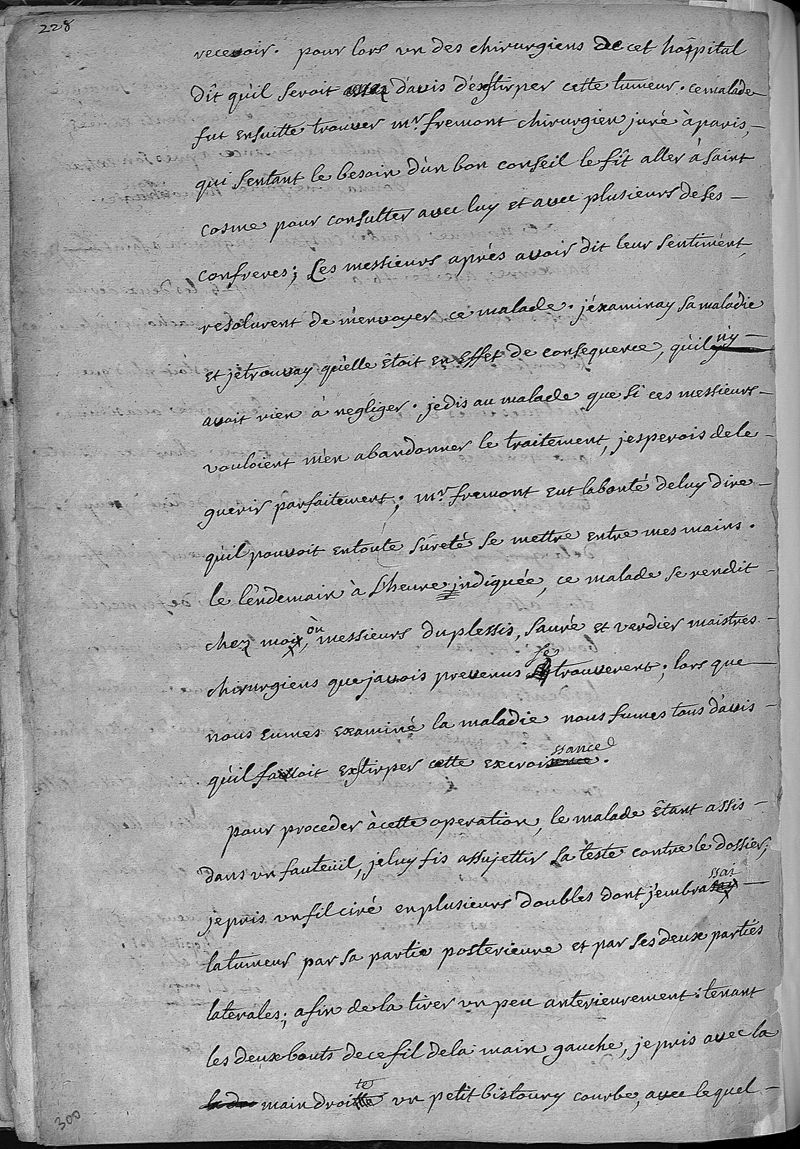 228
recevoir. pour lors un des chirurgiens de cet hôspital
dit qu'il seroit d'avis d'exstirper cette tumeur. ce malade
fut ensuitte trouver mr. fremont chirurgien juré à paris,
qui sentant le besoin d'un bon conseil le fît aller à saint
cosme pour consulter avec luy et avec plusieurs de ses
confreres; Les messieurs aprés avoir dit leur sentiment,
resolurent de m'envoyer ce malade. j'éxaminay sa maladie
et je trouvay qu'elle étoit en effet de consequence, qu'il n'y
avoit rien à negliger. je dis au malade que si ces messieurs
vouloient m'en abandonner le traitement, j'esperois de le
guerir parfaitement; mr. fremont eut la bonté de luy dire
qu'il pouvoit en toute sûreté se mettre entre mes mains.
le lèndemain à l'heure indiquée, ce malade se rendit
chez moi, où messieurs duplessis, sauré et verdier maistres
chirurgiens que j'avois prevenus se trouverent; lors que
nous eumes examiné la maladie nous fumes tous d'avis
qu'il falloit exstirper cette excroissance.
pour proceder à cette operation, le malade êtant assis
dans un fauteüil, je luy fis assujettir sa teste contre le dossier;
je pris un fil ciré en plusieurs doubles dont j'embrassai
la tumeur par sa partie posterieure et par ses deux parties
laterales; afin de la tirer un peu anterieurement: tenant
les deux bouts de ce fil de la main gauche, je pris avec la
main droitte un petit bistoury courbe, avec lequel
300